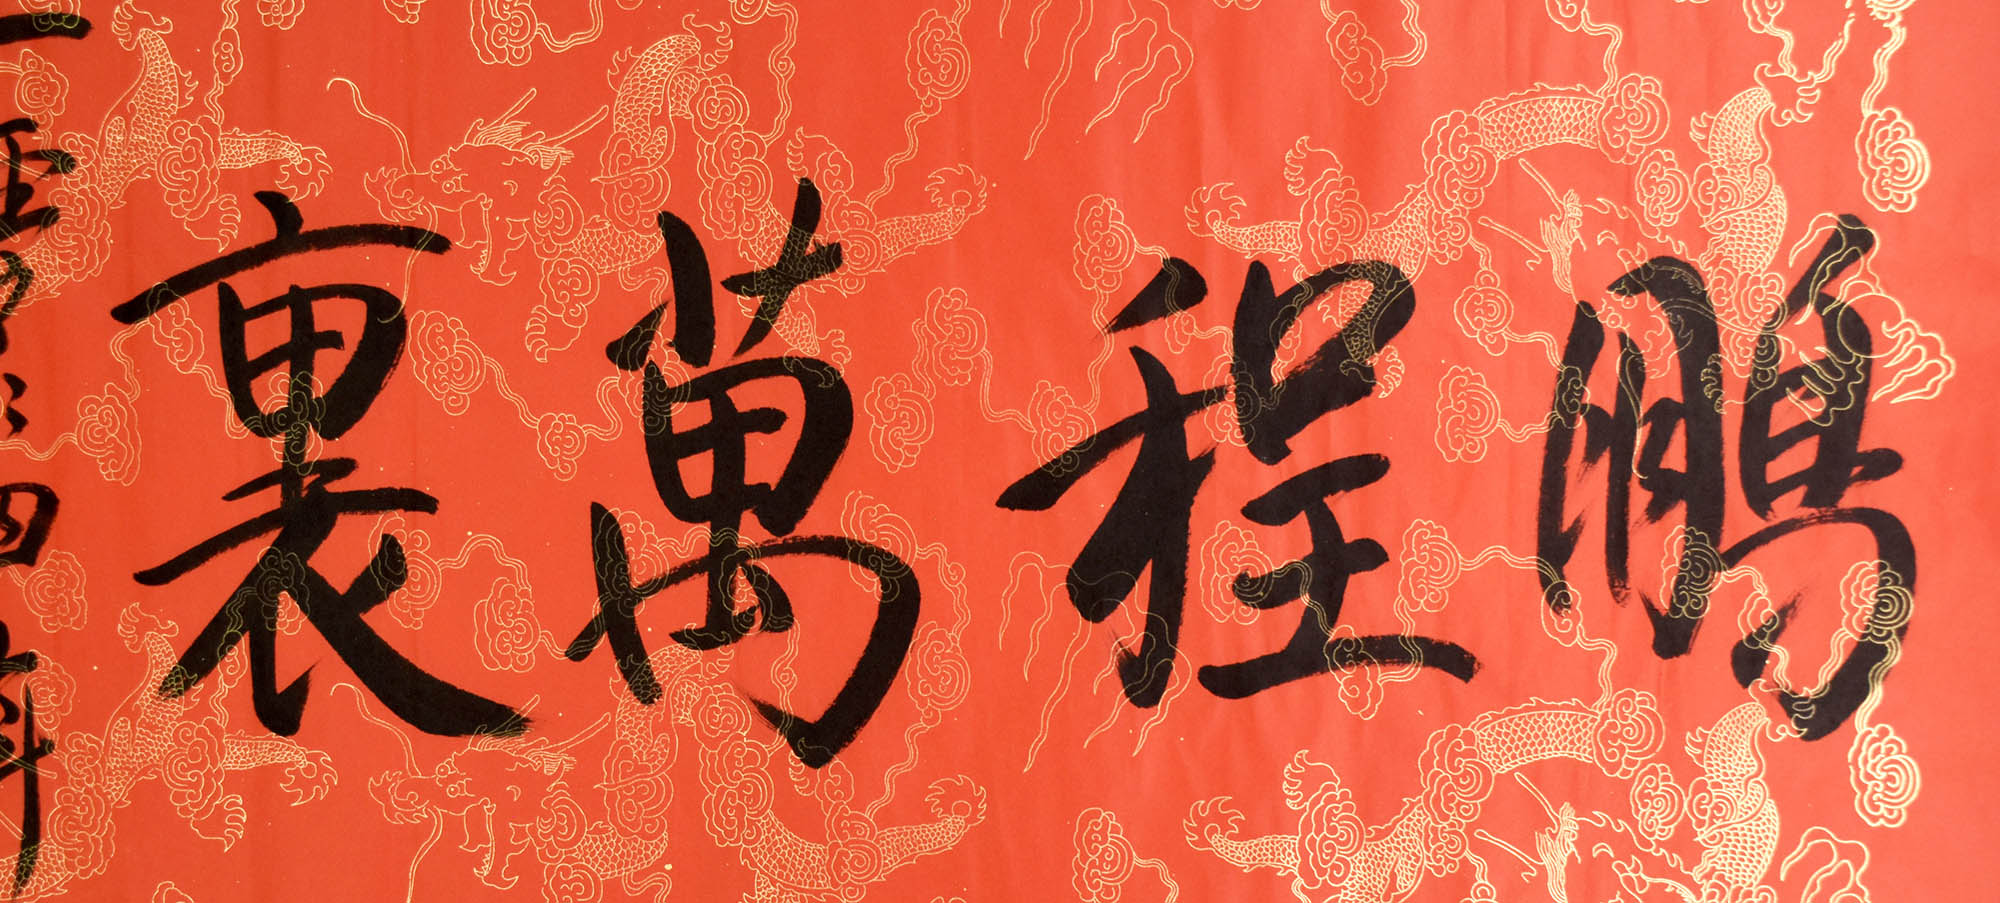 鵬程萬裏